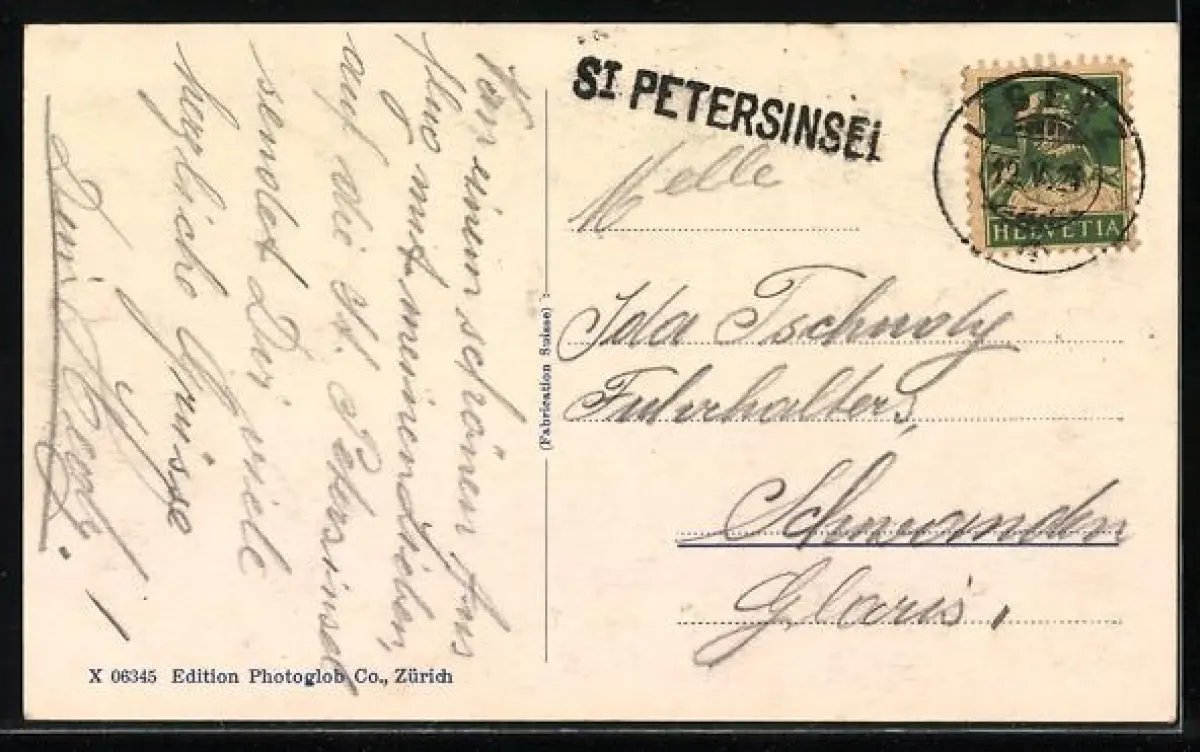 Von einem schönen Aus
flug mit meinen Lieben,
auf die St. Petersinsel
sendet Dir viele
herzliche Grüsse
ST PETERSINSEL
HELVETIA
Melle
Ida Tschudy
Schwanden
Glaris.
(Fabrication Suisse)
X 06345 Edition Photoglob Co., Zürich